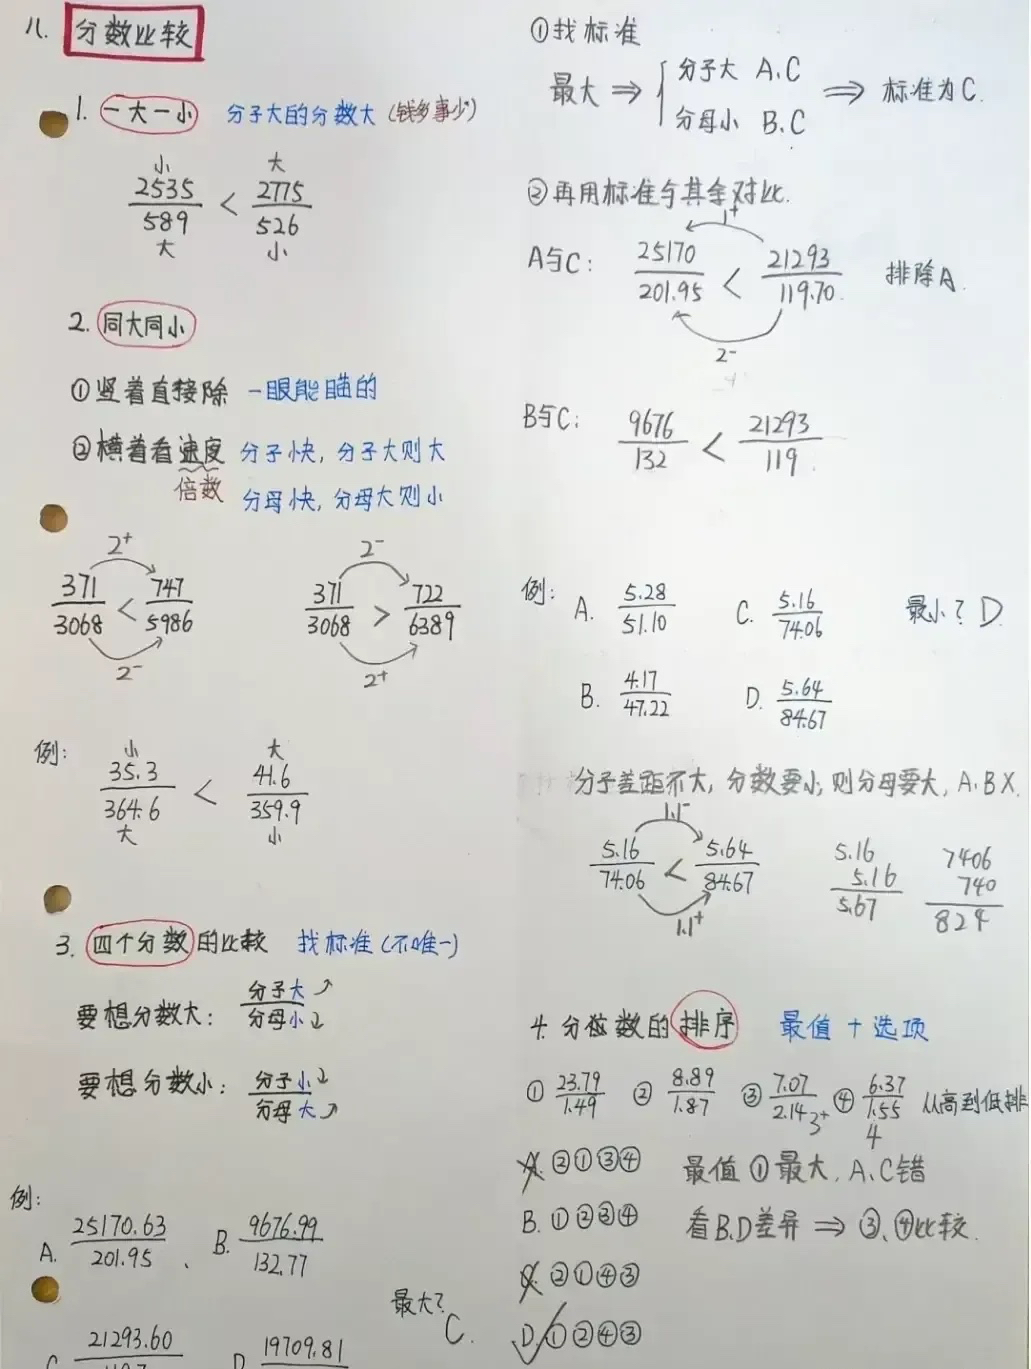 八. 分数比较
1. 一大一小 分子大的分数大 (钱多事少)
小 大
2535/589 < 2775/526
大 小
2. 同大同小
①竖着直接除 一眼能瞄的
②横着看速度 分子快, 分子大则大
倍数 分母快, 分母大则小
2⁺ 2⁻
371/3068 < 747/5986 371/3068 > 722/6389
2⁻ 2⁺
例: 小 大
35.3/364.6 < 41.6/359.9
大 小
3. 四个分数的比较 找标准(不唯一)
要想分数大: 分子大↗/分母小↘
要想分数小: 分子小↘/分母大↗
例:
A. 25170.63/201.95 、 B. 9676.99/132.77
最大? C.
21293.60 D 19709.81
①找标准
最大 ⇒ { 分子大 A、C
分母小 B、C ⇒ 标准为C.
②再用标准与其余对比.
1⁺
A与C: 25170/201.95 < 21293/119.70. 排除A.
2⁻
B与C: 9676/132 < 21293/119.
例: A. 5.28/51.10 C. 5.16/74.06 最小? D
B. 4.17/47.22 D. 5.64/84.67
分子差距不大, 分数要小, 则分母要大, A、B X.
1.1⁻
5.16/74.06 < 5.64/84.67
1.1⁺
5.16
5.16
5.67
7406
740
824
4. 分位数的排序 最值+选项
① 23.79/1.49 ② 8.89/1.87 ③ 7.07/2.14 3⁺ ④ 6.37/1.55 从高到低排
4
A. ②①③④ 最值①最大, A、C错
B. ①②③④ 看B、D差异 ⇒ ③、④比较.
C. ②①④③
D. ①②④③